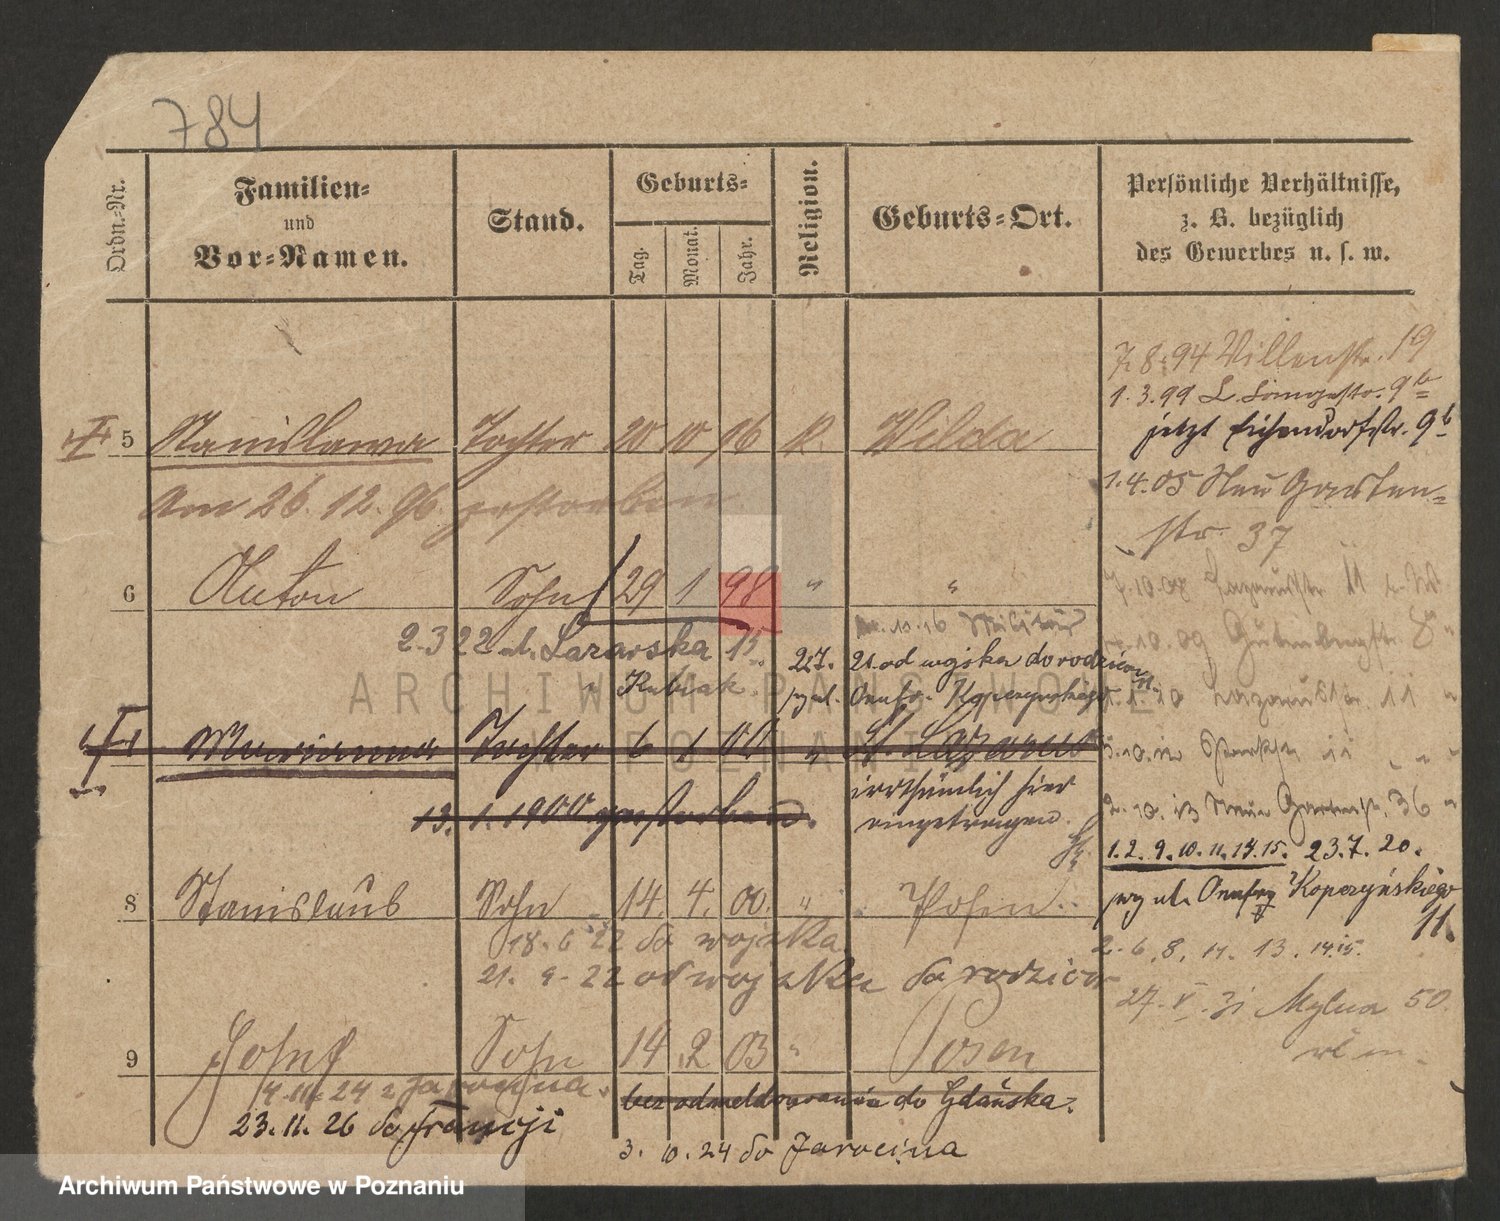 784
Ordn.-Nr.
Familien-
und
Vor-Namen.
Stand.
Geburts-
Tag.
Monat.
Jahr.
Religion.
Geburts-Ort.
Persönliche Verhältnisse,
z. B. bezüglich
des Gewerbes u. s. w.
7.8.94 Villenstr. 19
1.3.99 L. Langestr. 9b
jetzt Eichendorfstr. 9b
5 Stanislawa Tochter 20 10 96 k. Wilda
1.4.05 Neu Garten-
str. 37
Am 26.12.96 gestorben
6 Anton Sohn 29 1 98 " "
10.16 Militär
2.3 22 ul. Łazarska 15
Kubiak
22.7. 21. od wojska do rodziców
przy ul. Onufr. Kopczyńskiego 11.
Marianna Tochter 6 1 00 " St. Lazarus
13. 1. 1900 gestorben.
irrthümlich hier
eingetragen.
10.09 Gutenbergstr. 8
10 Lazarusstr. 11
10.12 Parkstr. 11
2.10.13 Neue Gartenstr. 36
1.2.9.10.11.14.15. 23.7.20.
przy ul. Onufry Kopczyńskiego
11.
8 Stanislaus Sohn 14. 4. 00. " Posen
18.6 22 do wojska
21. 9. 22 od wojska do rodziców
2.6.8.11.13.14.15.
27.V.31 Mylna 50
9 Josef Sohn 14 2 03 " Posen
24 z Jarocina.
bez odmeldowania do Gdańska.
23.11.26 do Francji
3.10.24 do Jarocina
ARCHIWUM PAŃSTWOWE
W POZNANIU
Archiwum Państwowe w Poznaniu